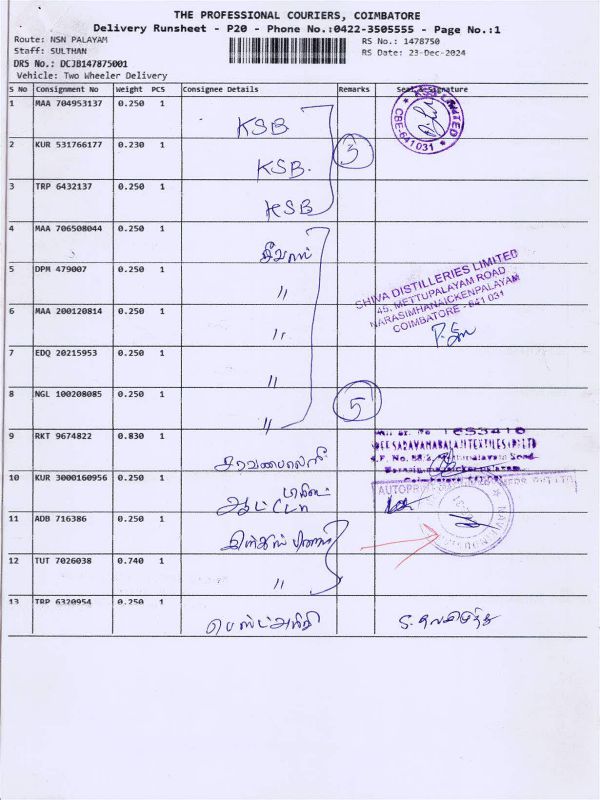 THE PROFESSIONAL COURIERS, COIMBATORE
Delivery Runsheet - P20 - Phone No.:0422-3505555 - Page No.:1
Route: NSN PALAYAM
RS No.: 1478750
Staff: SULTHAN
RS Date: 23-Dec-2024
DRS No.: DCJB147875001
Vehicle: Two Wheeler Delivery
S No Consignment No Weight PCS Consignee Details Remarks Seal & Signature
1 MAA 704953137 0.250 1 KSB
LIMITED
CBE-641 031
2 KUR 531766177 0.230 1 KSB. 3
3 TRP 6432137 0.250 1 KSB
4 MAA 706508044 0.250 1
5 DPM 479007 0.250 1 "
SHIVA DISTILLERIES LIMITED
45, METTUPALAYAM ROAD
NARASIMHANAICKENPALAYAM
COIMBATORE - 641 031
6 MAA 200120814 0.250 1 "
7 EDQ 20215953 0.250 1 "
8 NGL 100208085 0.250 1 " 5
9 RKT 9674822 0.830 1
10 KUR 3000160956 0.250 1
11 ADB 716386 0.250 1
12 TUT 7026038 0.740 1 "
13 TRP 6320954 0.250 1